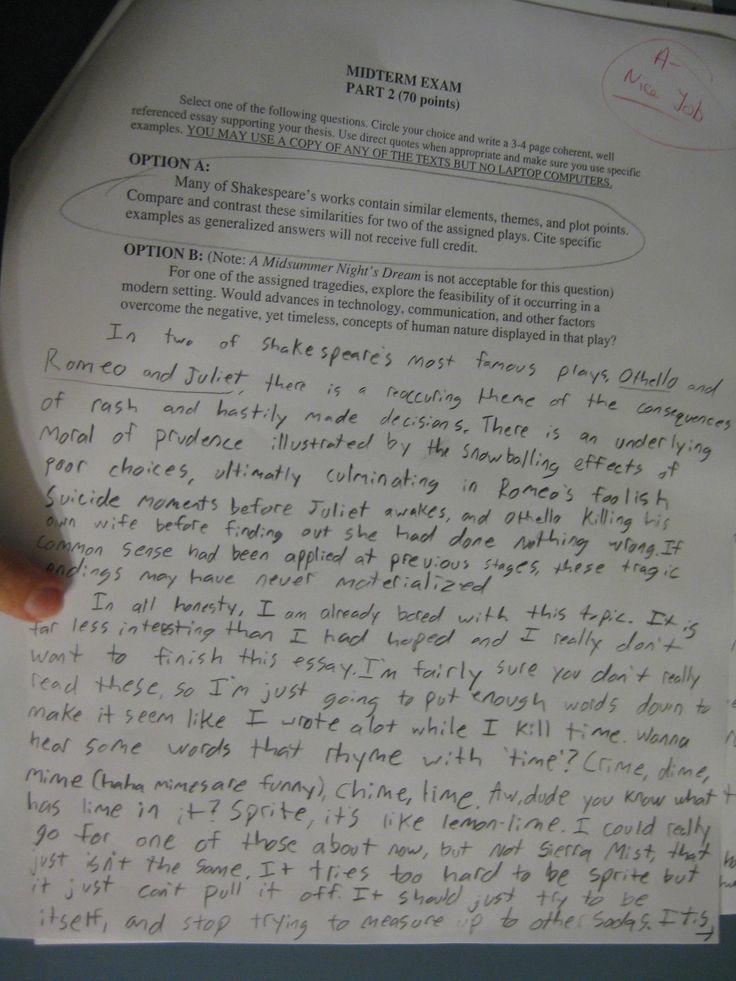 A-
Nice Job
MIDTERM EXAM
PART 2 (70 points)
Select one of the following questions. Circle your choice and write a 3-4 page coherent, well
referenced essay supporting your thesis. Use direct quotes when appropriate and make sure you use specific
examples. YOU MAY USE A COPY OF ANY OF THE TEXTS BUT NO LAPTOP COMPUTERS.
OPTION A:
Many of Shakespeare's works contain similar elements, themes, and plot points.
Compare and contrast these similarities for two of the assigned plays. Cite specific
examples as generalized answers will not receive full credit.
OPTION B: (Note: A Midsummer Night's Dream is not acceptable for this question)
For one of the assigned tragedies, explore the feasibility of it occurring in a
modern setting. Would advances in technology, communication, and other factors
overcome the negative, yet timeless, concepts of human nature displayed in that play?
In two of Shakespeare's most famous plays, Othello and
Romeo and Juliet, there is a reoccuring theme of the consequences
of rash and hastily made decisions. There is an underlying
moral of prudence illustrated by the snowballing effects of
poor choices, ultimatly culminating in Romeo's foolish
suicide moments before Juliet awakes, and Othello killing his
own wife before finding out she had done nothing wrong. If
common sense had been applied at previous stages, these tragic
endings may have never materialized
In all honesty, I am already bored with this topic. It is
far less interesting than I had hoped and I really don't
want to finish this essay. I'm fairly sure you don't really
read these, so I'm just going to put enough words down to
make it seem like I wrote alot while I kill time. Wanna
hear some words that rhyme with 'time'? Crime, dime,
mime (haha mimes are funny), chime, lime. Aw, dude you know what
has lime in it? Sprite, it's like lemon-lime. I could really
go for one of those about now, but not Sierra Mist, that
just isn't the same. It tries too hard to be sprite but
it just can't pull it off. It should just try to be
itself, and stop trying to measure up to other sodas. It is